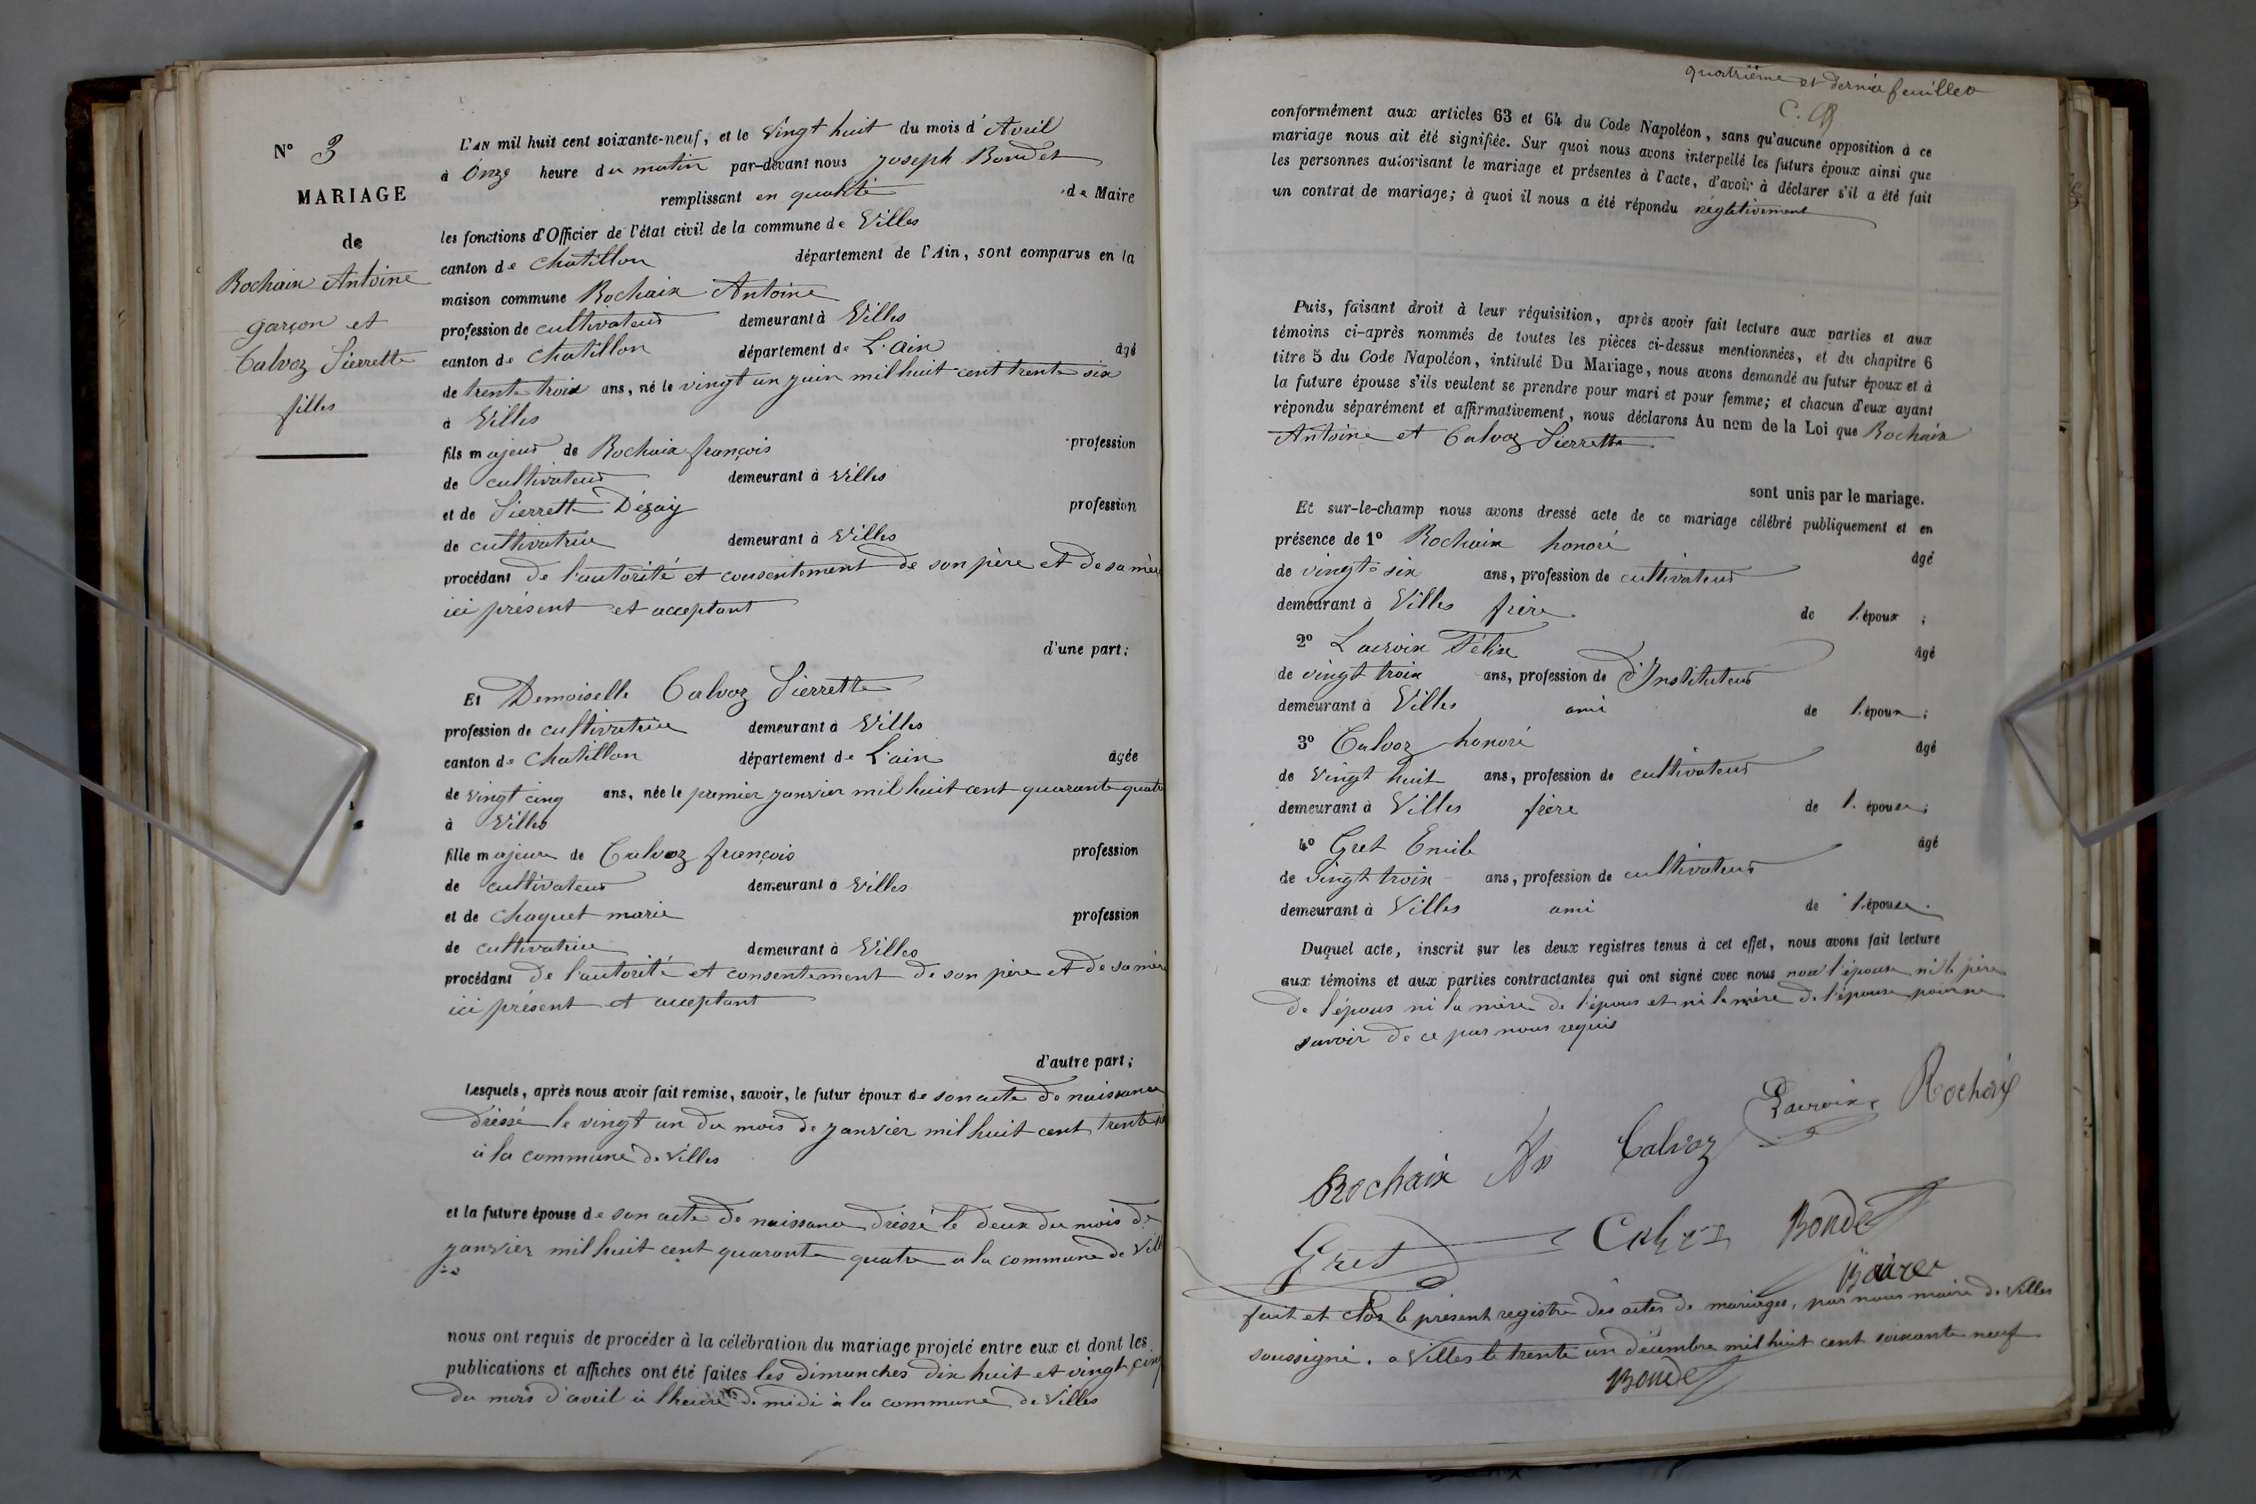 N° 3
MARIAGE
de
Rochaix Antoine
garçon et
Calvoz Pierrette
filles
L'AN mil huit cent soixante-neuf, et le Vingt huit du mois d'Avril
à Onze heure du matin par-devant nous Joseph Bondet
remplissant en qualité de Maire
les fonctions d'Officier de l'état civil de la commune de Villes
canton de Chatillon département de l'Ain, sont comparus en la
maison commune Rochaix Antoine
profession de cultivateur demeurant à Villes
canton de Chatillon département de L'Ain âgé
de trente trois ans, né le vingt un juin mil huit cent trente six
à Villes
fils majeur de Rochaix françois profession
de cultivateur demeurant à Villes
et de Pierrette Dézay profession
de cultivatrice demeurant à Villes
procédant de l'autorité et consentement de son père et de sa mère
ici présent et acceptant
d'une part;
Et Demoiselle Calvoz Pierrette
profession de cultivatrice demeurant à Villes
canton de Chatillon département de L'ain âgée
de vingt cinq ans, née le premier janvier mil huit cent quarante quatre
à Villes
fille majeure de Calvoz françois profession
de cultivateur demeurant à Villes
et de Chaquet marie profession
de cultivatrice demeurant à Villes
procédant de l'autorité et consentement de son père et de sa mère
ici présent et acceptant
d'autre part;
Lesquels, après nous avoir fait remise, savoir, le futur époux de son acte de naissance
dressé le vingt un du mois de janvier mil huit cent trente six
à la commune de Villes
et la future épouse de son acte de naissance dressé le deux du mois de
janvier mil huit cent quarante quatre a la commune de Vill
es
nous ont requis de procéder à la célébration du mariage projeté entre eux et dont les
publications et affiches ont été faites les dimanches dix huit et vingt cinq
du mois d'avril à l'heure de midi à la commune de Villes
quatrième et dernier feuillet
C. B
conformément aux articles 63 et 64 du Code Napoléon, sans qu'aucune opposition à ce
mariage nous ait été signifiée. Sur quoi nous avons interpellé les futurs époux ainsi que
les personnes autorisant le mariage et présentes à l'acte, d'avoir à déclarer s'il a été fait
un contrat de mariage; à quoi il nous a été répondu négativement
Puis, faisant droit à leur réquisition, après avoir fait lecture aux parties et aux
témoins ci-après nommés de toutes les pièces ci-dessus mentionnées, et du chapitre 6
titre 5 du Code Napoléon, intitulé Du Mariage, nous avons demandé au futur époux et à
la future épouse s'ils veulent se prendre pour mari et pour femme; et chacun d'eux ayant
répondu séparément et affirmativement, nous déclarons Au nom de la Loi que Rochaix
Antoine et Calvoz Pierrette
sont unis par le mariage.
Et sur-le-champ nous avons dressé acte de ce mariage célébré publiquement et en
présence de 1° Rochaix honoré âgé
de vingt six ans, profession de cultivateur
demeurant à Villes frère de l'époux ;
2° Lacroix Félix âgé
de vingt trois ans, profession de d'Instituteur
demeurant à Villes ami de l'époux ;
3° Calvoz honoré âgé
de Vingt huit ans, profession de cultivateur
demeurant à Villes frère de l'épouse ;
4° Gret Emile âgé
de vingt trois ans, profession de cultivateur
demeurant à Villes ami de l'épouse.
Duquel acte, inscrit sur les deux registres tenus à cet effet, nous avons fait lecture
aux témoins et aux parties contractantes qui ont signé avec nous non l'épouse ni le père
de l'époux ni la mère de l'époux et ni la mère de l'épouse pour ne
savoir de ce par nous requis
Lacroix Rochaix
Rochaix Calvoz
Gret Calvoz Bondet
Maire
fait et clos le présent registre des actes de mariages, par nous maire de Villes
soussigné. a Villes le trente un décembre mil huit cent soixante neuf
Bondet